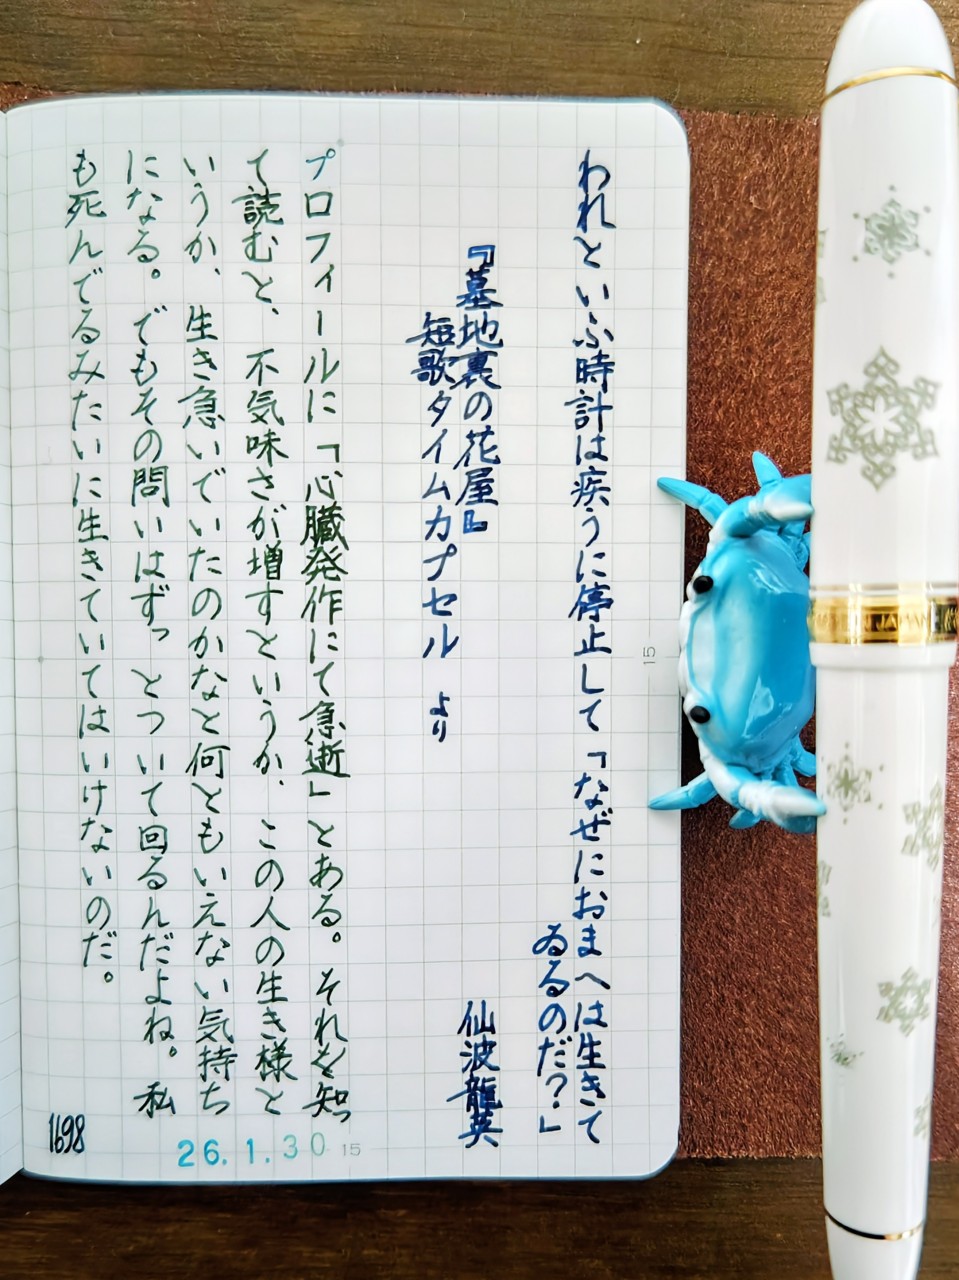 われといふ時計は疾うに停止して「なぜにおまへは生きて
ゐるのだ?」
『墓地裏の花屋』 仙波龍英
短歌タイムカプセル より
プロフィールに「心臓発作にて急逝」とある。それを知っ
て読むと、不気味さが増すというか、この人の生き様と
いうか、生き急いでいたのかなと何ともいえない気持ち
になる。でもその問いはずっとついて回るんだよね。私
も死んでるみたいに生きていてはいけないのだ。
1698
26.1.30
15
15